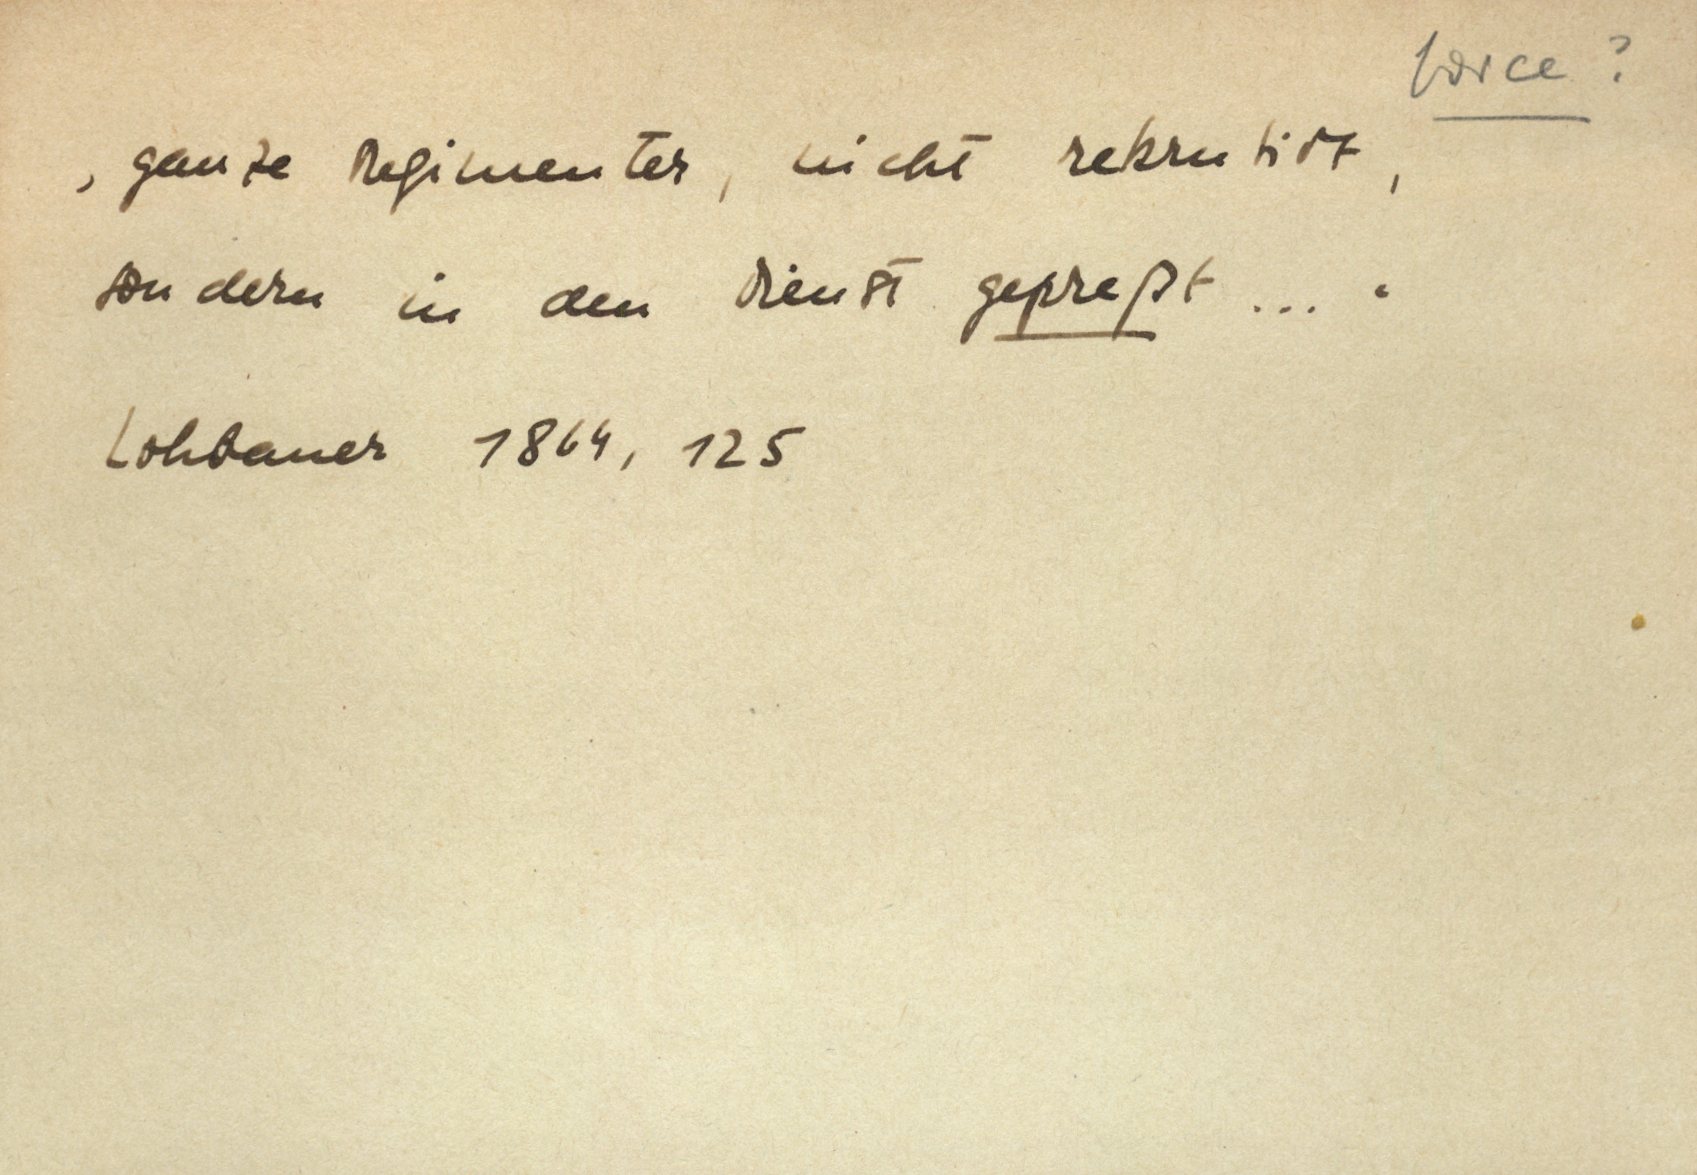 force ?
‚ ganze Regimenter, nicht rekrutirt,
sondern in den Dienst gepreßt ... ‘
Lohbauer 1864, 125